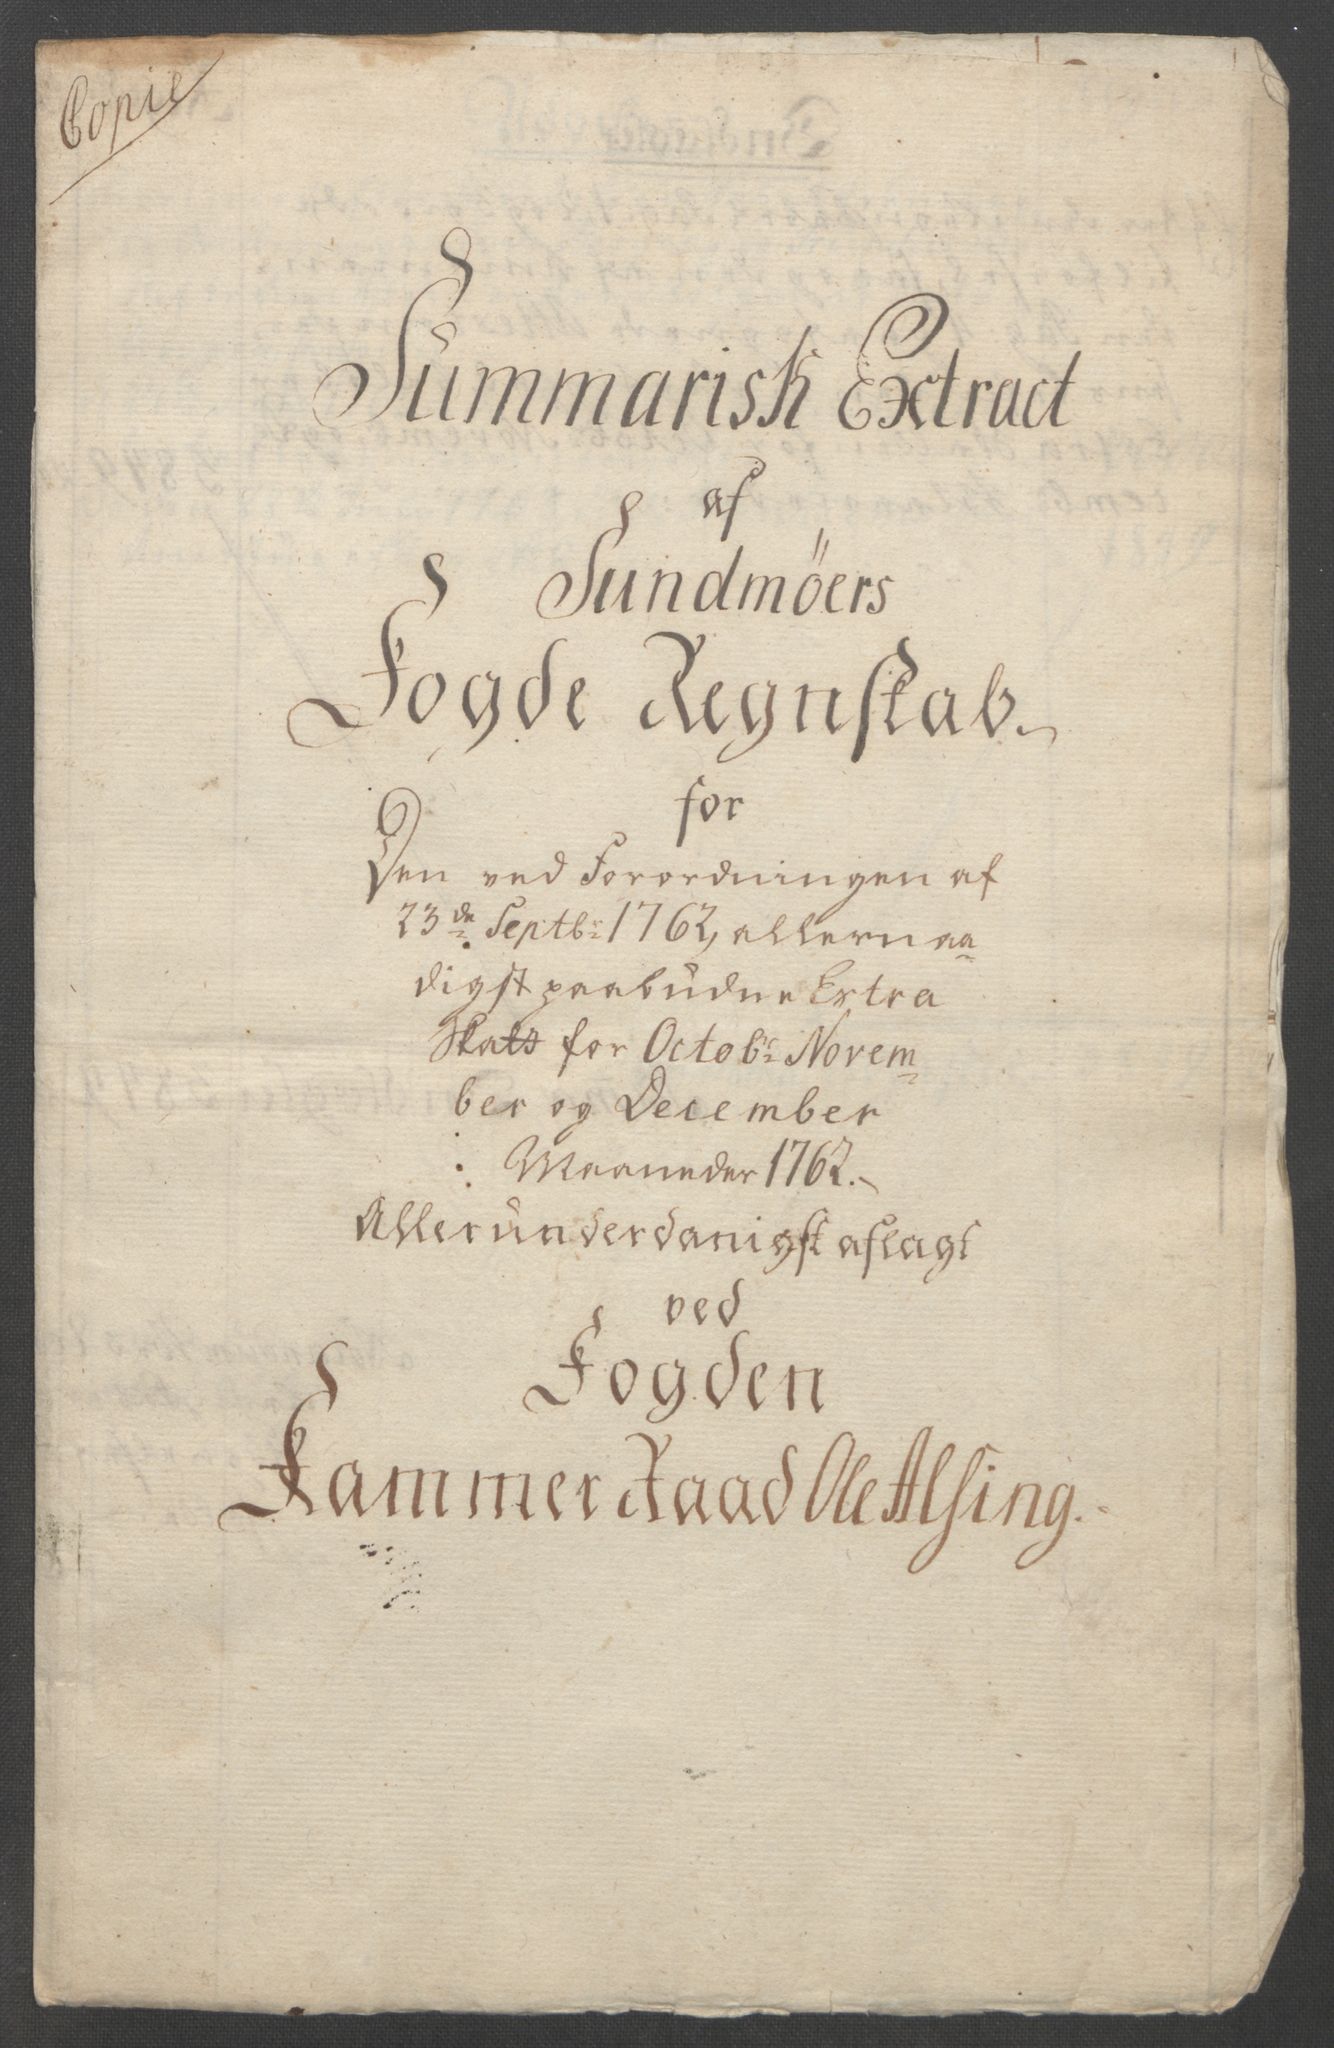 Copie
Summarisk Extract
af
Sundmöers
Fogde Regnskab.
for
Den ved Forordningen af
23de Septbr 1762, allernaa-
digst paabudne Extra
Skatt for Octobr Novem-
ber og December
Maaneder 1762.
Allerunderdanigst aflagt
ved
Fogden
Kammer Raad Ole Alsing.